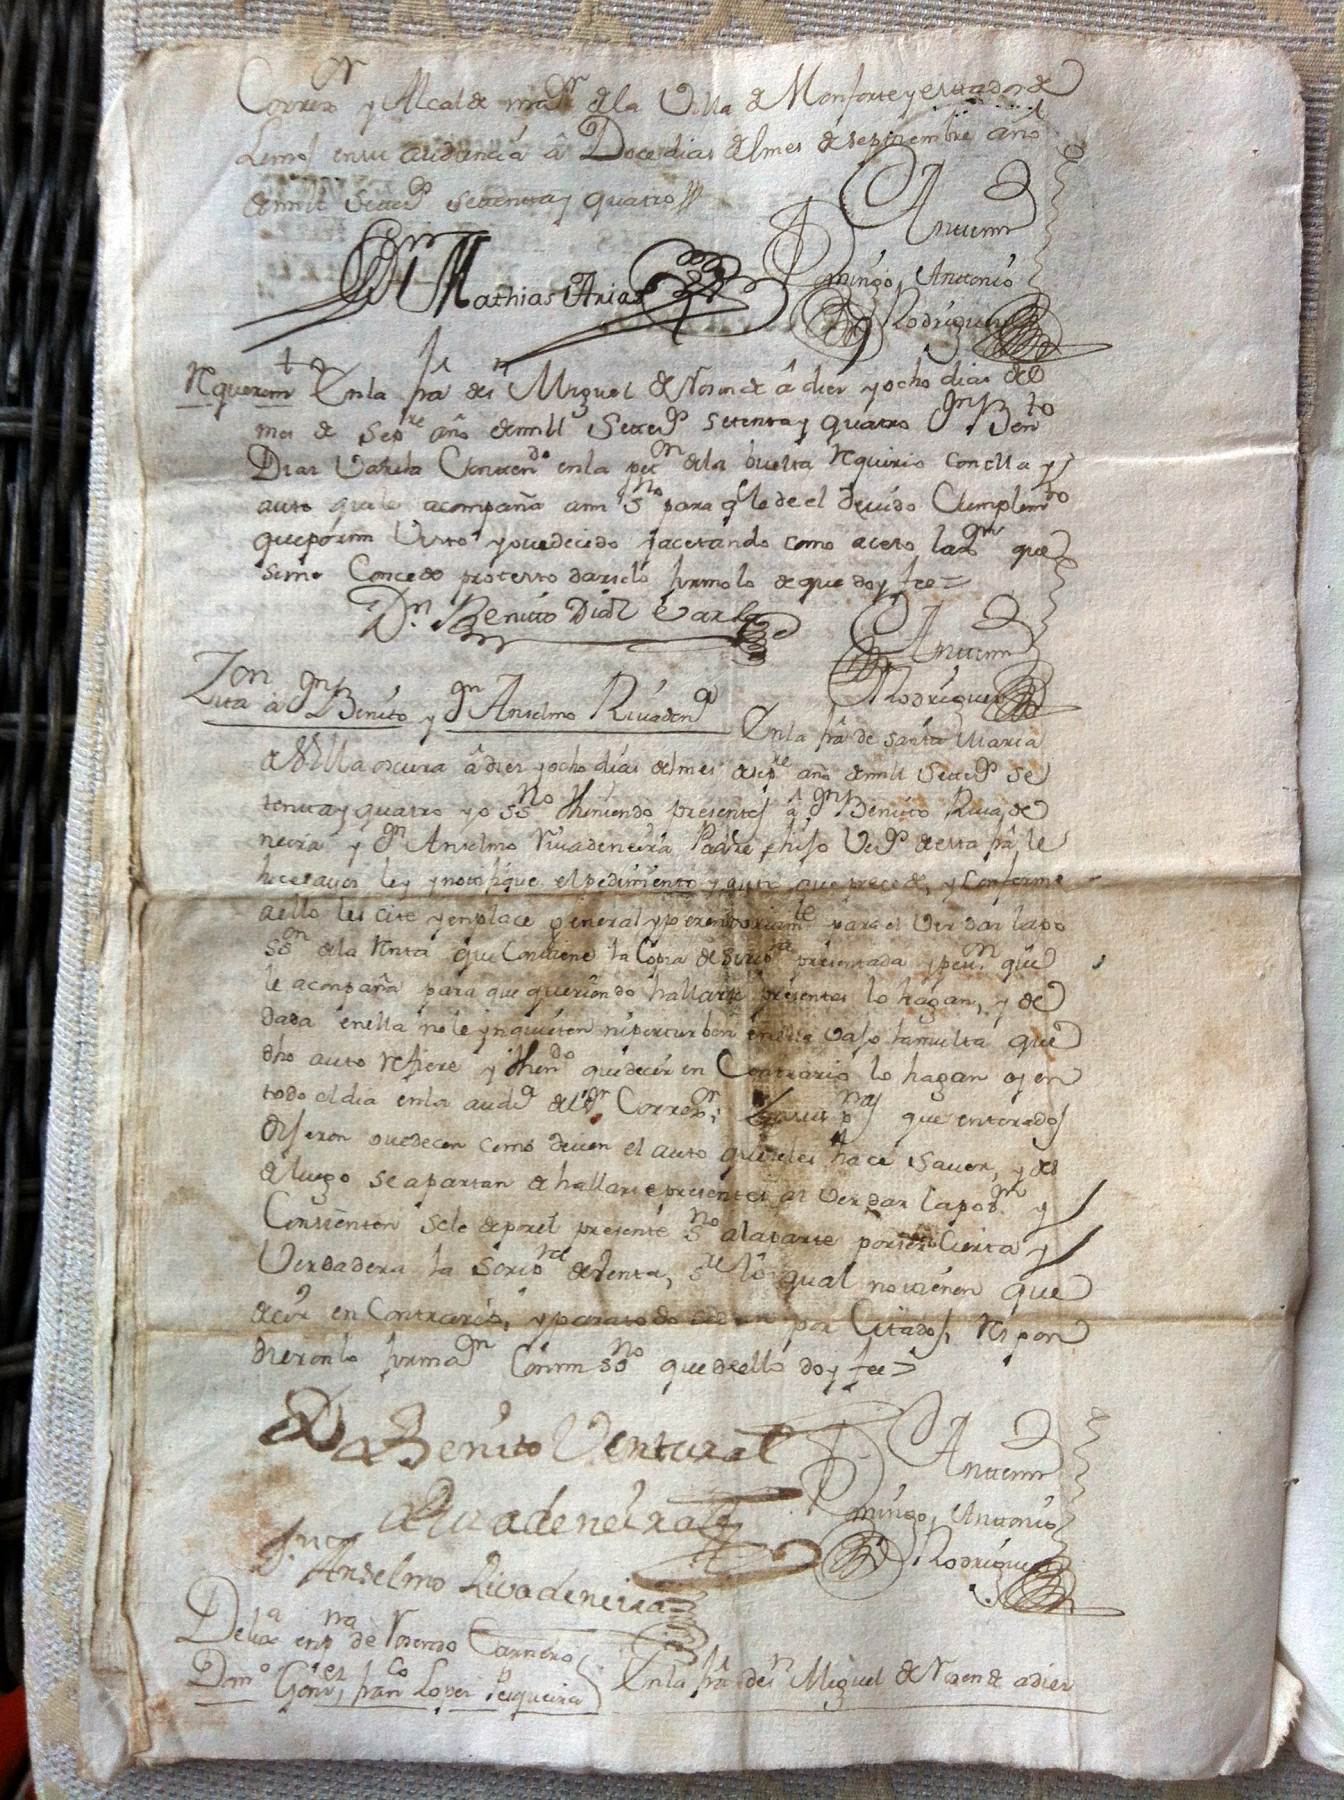 Correxor y Alcalde maor de la Villa de Monforte y estados de
Lemos en su audiencia â Doce dias del mes de septiembre año
de mill Settecs settenta y quatro
Dn Mathias Arias
Antemi
Domingo Antonio
Rodriguez
Requerimto En la fra de Sn Miguel de Rosende â diez y ocho dias del
mes de Sepre año de mill Settecs setenta y quatro Dn Bento
Diaz Varela Contendo en la petn de la buelta requirio con ella y
auto que le acompaña a mi sno para q le de el devido Cumplimto
que por mi Visto y ovedecido y acetando como aceto la Comn que
se me Concede protesto darselo firmolo de que doy fee =
Dn Benitto Diaz Varla
Antemi
Rodriguez
Zitaon â Dn Benito y Dn Anselmo Rivadena En la fra de santa Maria
de Villa oscura â diez y ocho dias del mes de sepre año de mill Settecs se
tenta y quatro yo ssno theniendo presentes â Dn Benito Rivade
neira y Dn Anselmo Rivadeneira Padre e hijo Vecs de esta fra le
hice saver ley y notifique el pedimiento y auto que precede, y Conforme
a ello les cite y enplace general y perentoriamte para el Ver dar la po
sson de la renta que Contiene la Copia de scripra presentada y petn que
le acompaña para que queriendo hallarse presentes lo hagan, y de
dada en ella no le ynquieten ni perturben en dho caso la multa que
dho auto refiere y thendo que decir en Contrario lo hagan oy en
todo el dia en la auda del sr Correxor; que enterados
dijeron ovedecen como deven el auto que se les hace saver, y des
de luego se apartan de hallarse presentes al ver dar la poson y
Consienten se le de por el presente sno a la parte por ser Cierta y
Verdadera la scripra de renta, sre lo qual no tienen que
decir en Contrario, y para todo se dan por Citados, respon
dieron lo firman Conmi ssno que de ello doy fee =
Dn Benito Ventura
Rivadeneira
Antemi
Domingo Antonio
Rodriguez
Anselmo Rivadeneira
Delixa en pna de Rosendo Carnero
Domo Gonez, franco Lopez Pesqueira En la fra de Sn Miguel de Rosende a diez